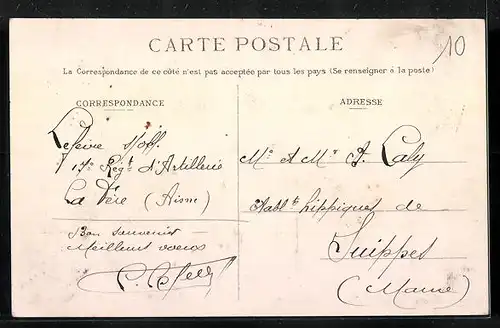 10
CARTE POSTALE
La Correspondance de ce côté n'est pas acceptée par tous les pays (Se renseigner à la poste)
CORRESPONDANCE
Lefèvre s/off.
17e Régt d'Artillerie
La Fère (Aisne)
Bon souvenir
Meilleurs voeux
ADRESSE
Me et Mr A. Laly
Etablts hippiques de
Suippes
(Marne)